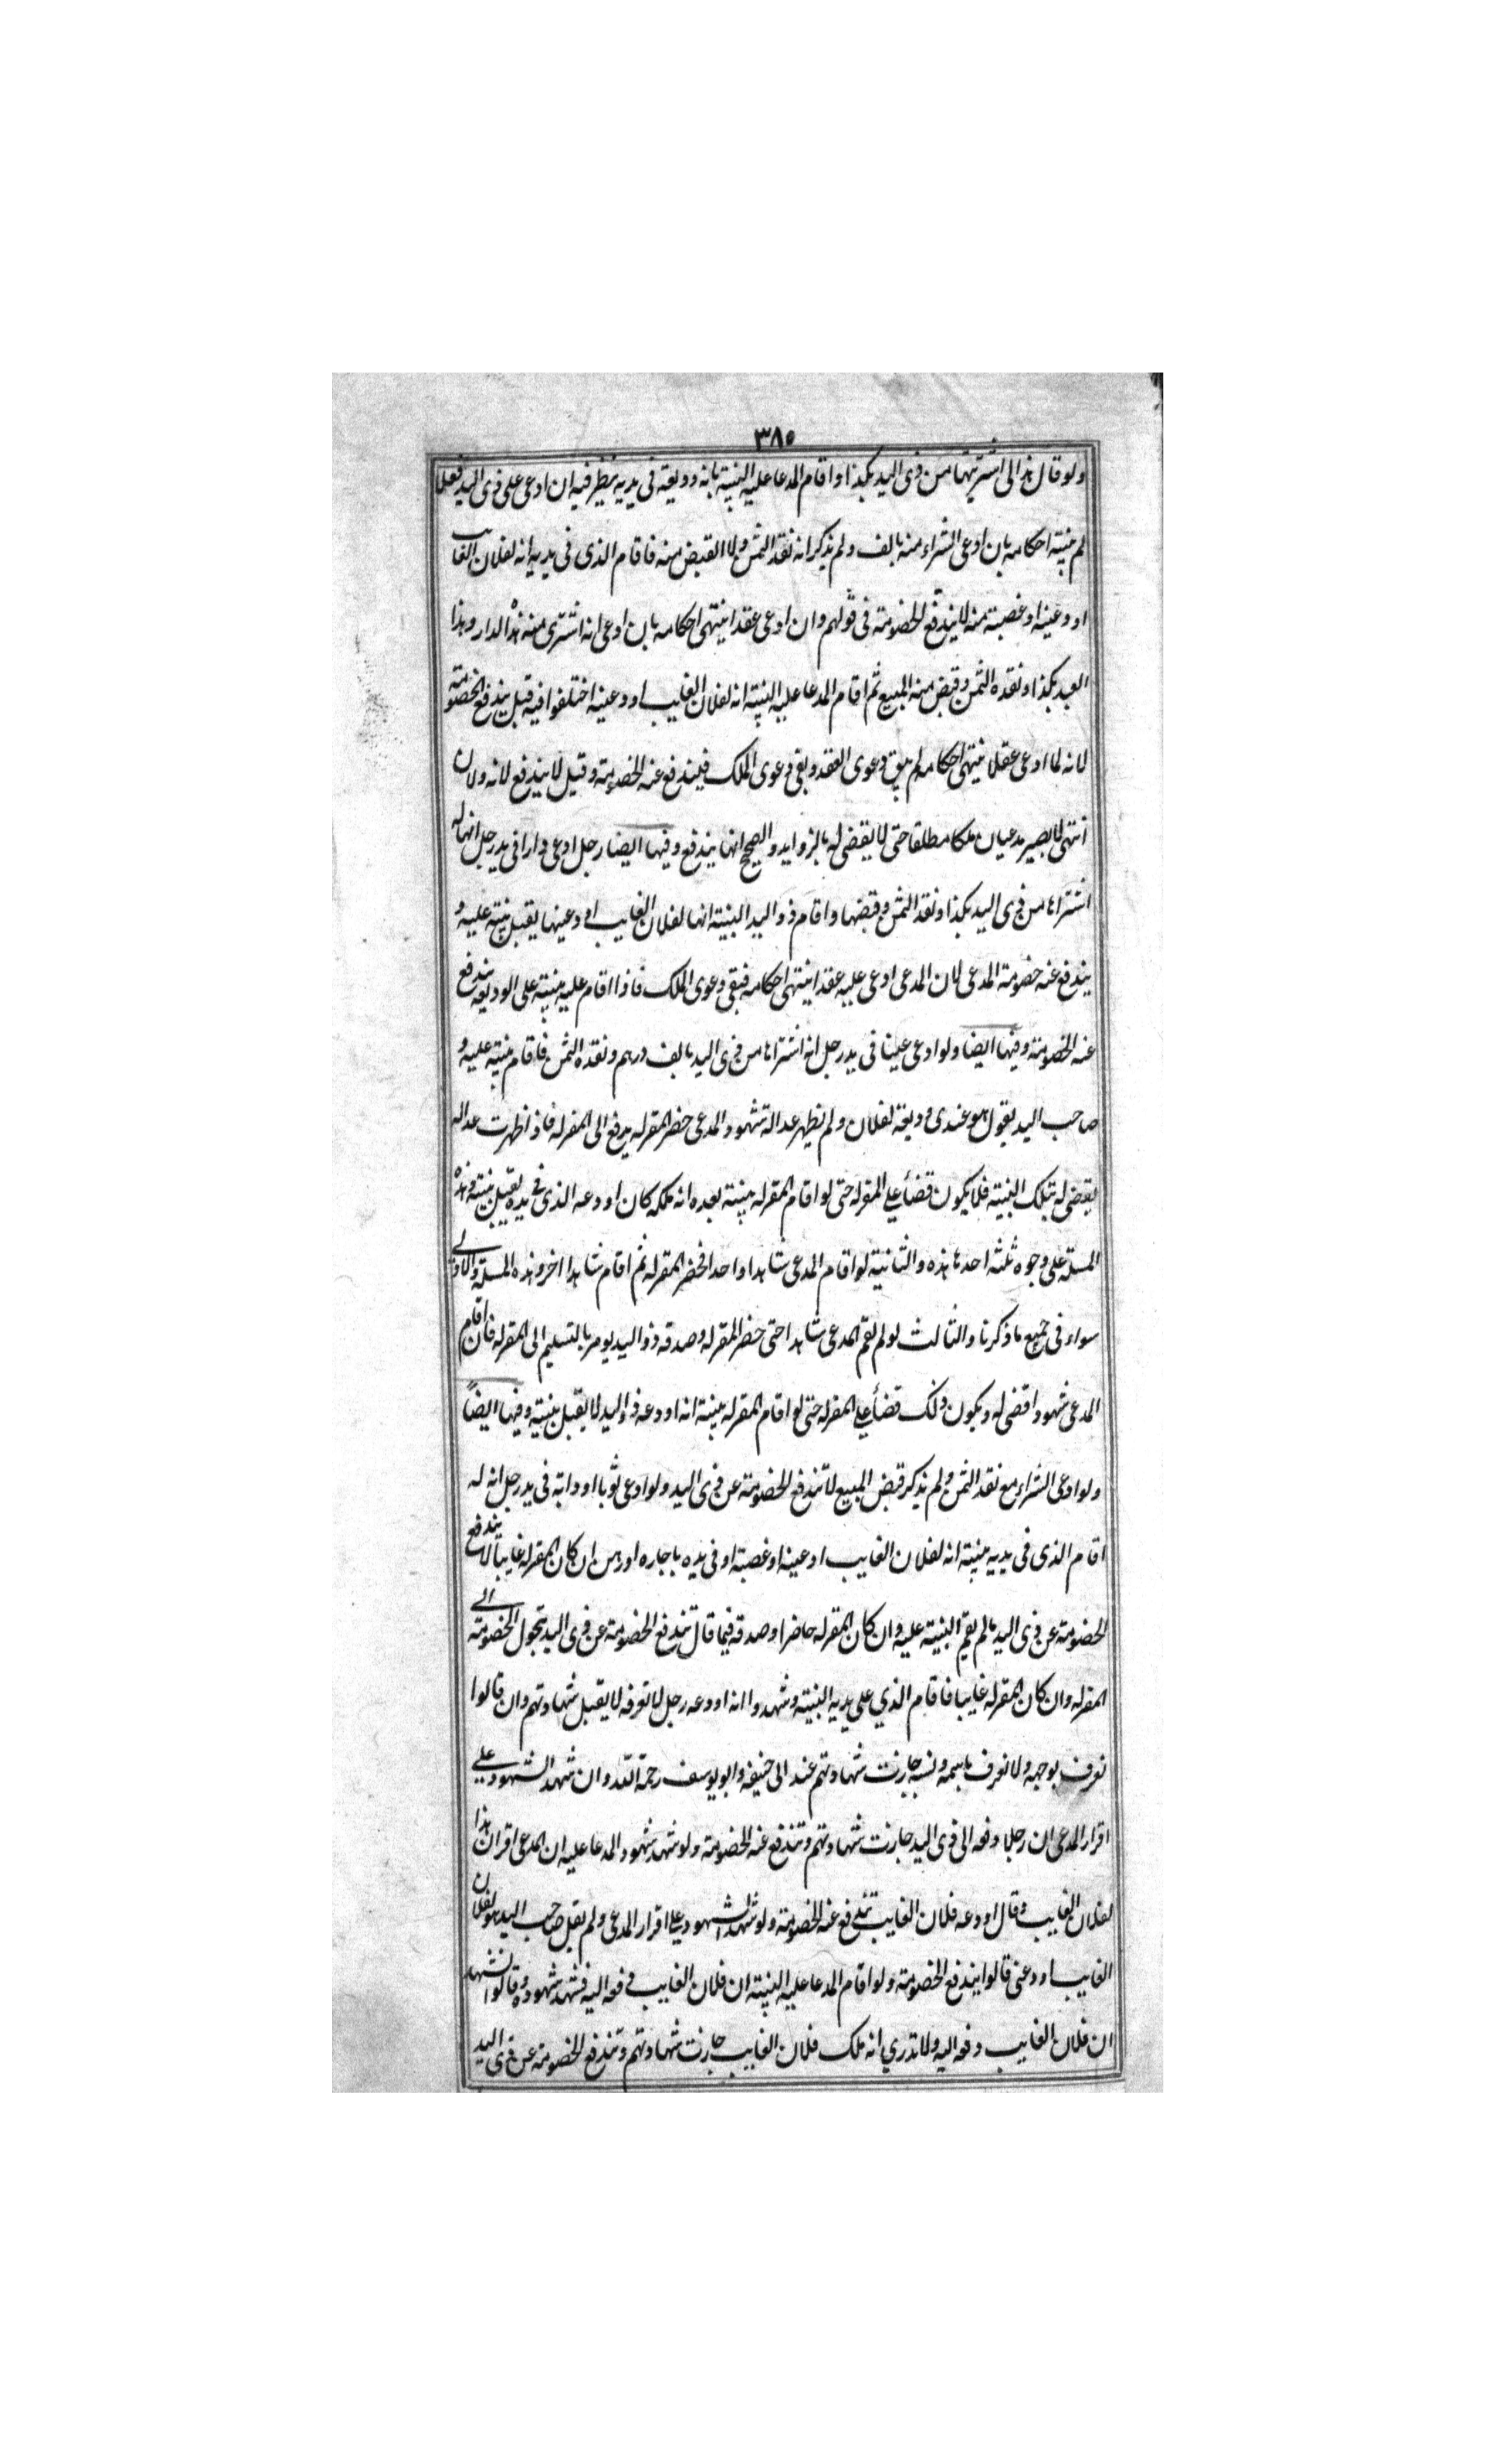 ٣٨٥
ولو قال هذا لى اشتريتها من ذى اليد بكذا واقام المدعا عليه البينة بانه وديعة فى يديه ينظر فيه ان ادعى على ذى اليد فعلا
لم ينته احكامه بان ادعى الشراء منه بالف ولم يذكر انه نقد الثمن ولا القبض منه فاقام الذى فى يديه انه لفلان الغايب
اودعينه او غصبته منه لا يندفع الخصومة فى قولهم وان ادعى عقدا ينتهى احكامه بان ادعى انه اشترى منه هذه الدار وهذا
العبد بكذا ونقده الثمن وقبض منه المبيع ثم اقام المدعا عليه البينة انه لفلان الغايب اودعينه اختلفوا فيه قيل يندفع الخصومة
لانه لما ادعى عقدا ينتهى احكامه لم يبق دعوى العقد وبقى دعوى الملك فيندفع عنه الخصومة وقيل لا يندفع لانه ولان
انتهى لا يصير مدعيان ملكا مطلقا حتى لا يقضى له بالزوايد والصحيح انها يندفع وفيها ايضا رجل ادعى دارا فى يد رجل انها له
اشتراها من ذى اليد بكذا ونقد الثمن وقبضها واقام ذو اليد البينة انها لفلان الغايب اودعينها يقبل بينته عليه و
يندفع عنه خصومة المدعى لان المدعى ادعى عليه عقدا ينتهى احكامه فبقى دعوى الملك فاذا اقام عليه بينته على الوديعة يندفع
عنه الخصومة وفيها ايضا ولو ادعى عينا فى يد رجل انه اشتراها من ذى اليد بالف درهم ونقده الثمن فاقام بينته عليه و
صاحب اليد يقول هو عندى وديعة لفلان ولم يظهر عدالة شهود المدعى حضر المقر له يدفع الى المقر له فاذ اظهرت عداله
يقضى له بتلك البينة فلا يكون قضأ على المقر له حتى لو اقام المقر له بينته بعده انه ملكه كان اودعه الذى فى يده يقبل بينته وهذه
المسئلة على وجوه ثلثه احدها هذه والثانية لو اقام المدعى شاهدا واحدا فحضر المقر له ثم اقام شاهدا اخر وهذه المسئلة والاولى
سواء فى جميع ما ذكرنا والثالث لو لم يقم المدعى شاهدا حتى حضر المقر له وصدقه ذو اليد يومر بالتسليم الى المقر له فان اقام
المدعى شهودا قضى له ويكون ذلك قضأ على المقر له حتى لو اقام المقر له بينته انه اودعه ذو اليد لا يقبل بينته وفيها ايضاً
ولو ادعى الشراء مع نقد الثمن ولم يذكر قبض المبيع لا تندفع الخصومة عن ذى اليد ولو ادعى ثوبا او دابة فى يد رجل انه له
اقام الذى فى يديه بينته انه لفلان الغايب اودعينه او غصبته او فى يده باجاره او رهن ان كان المقر له غايبا لا يندفع
الخصومة عن ذى اليد ما لم يقم البينة عليه وان كان المقر له حاضرا وصدقه فيما قال تندفع الخصومة عن ذى اليد تحول الخصومة الى
المقر له وان كان المقر له غايبا فاقام الذي على يديه البينة وشهدوا انه اودعه رجل لا نعرفه لا يقبل شهادتهم وان قالوا
نعرف بوجهه ولا نعرف باسمه ونسبه جازت شهادتهم عند ابى حنيفه وابو يوسف رحمة الله وان شهد الشهود على
اقرار المدعى ان رجلا دفعه الى ذى اليد جازت شهادتهم وتندفع عنه الخصومة ولو شهد شهود المدعا عليه ان المدعى اقر ان هذا
لفلان الغايب وقال اودعه فلان الغايب تندفع عنه الخصومة ولو شهد الشهود على اقرار المدعى ولم يقل صاحب اليد هو لفلان
الغايب اودعنى قالوا يندفع الخصومة ولو اقام المدعا عليه البينة ان فلان الغايب دفعه اليه فشهد شهوده وقالوا نشهد
ان فلان الغايب دفعه اليه ولا ندري انه ملك فلان الغايب جازت شهادتهم وتندفع الخصومة عن ذى اليد